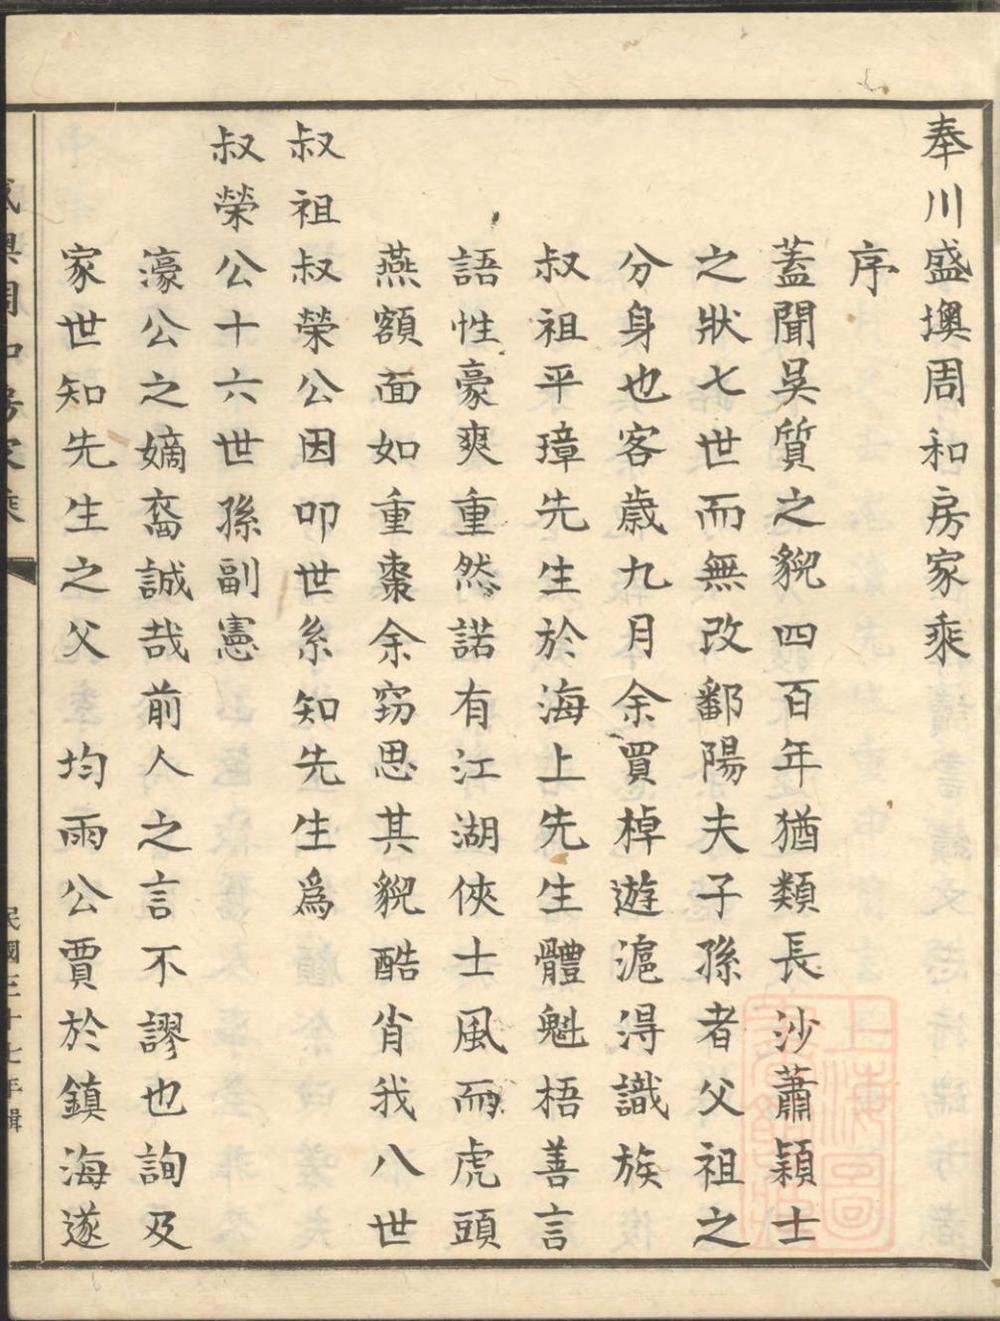 奉川盛墺周和房家乘
序
蓋聞吳質之貌四百年猶類長沙蕭穎士
之狀七世而無改鄱陽夫子孫者父祖之
分身也客歲九月余買棹遊滬淂識族
叔祖平璋先生於海上先生體魁梧善言
語性豪爽重然諾有江湖俠士風而虎頭
燕額面如重棗余窃思其貌酷肖我八世
叔祖叔榮公因叩世系知先生為
叔榮公十六世孫副憲
濠公之嫡裔誠哉前人之言不謬也詢及
家世知先生之父 均雨公賈於鎮海遂
民國三十七年輯